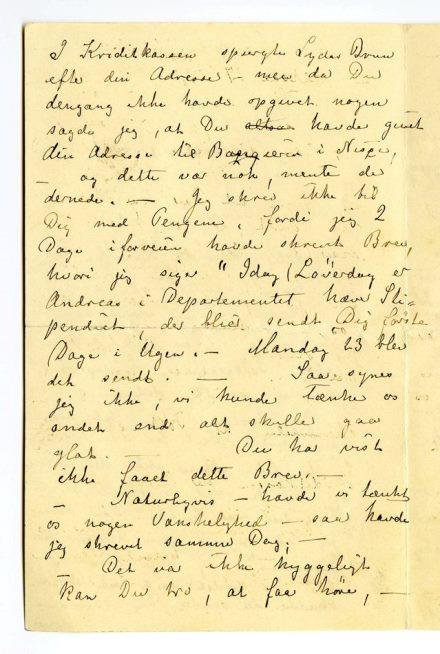 I Kriditkassen spurgte Lydas Bruun
efte din Adresse – men da Du
dengang ikke havde opgivet nogen
sagde jeg, at Du havde givet
din Adresse til Banquiren i Nizza,
– og dette var nok, mente de
dernede. – Jeg skrev ikke til
Dig med Pengene, fordi jeg 2
Dage iforveien havde skrevet Brev,
hvori jeg siger "Idag (Löverdag er
Andreas i Departementet hæve Sti-
pendiet, der blier sendt Dig förste
Dage i Ugen. – Mandag 23 blev
det sendt. – Saa synes
jeg ikke, vi kunde tænke os
andet end alt skulle gaa
glat. – Du har vist
ikke faaet dette Brev. –
– Naturligvis – havde vi tænkt
os nogen Vanskelighed – saa havde
jeg skrevet samme Dag; –
Det var ikke hyggeligt
kan Du tro, at faa höre, –